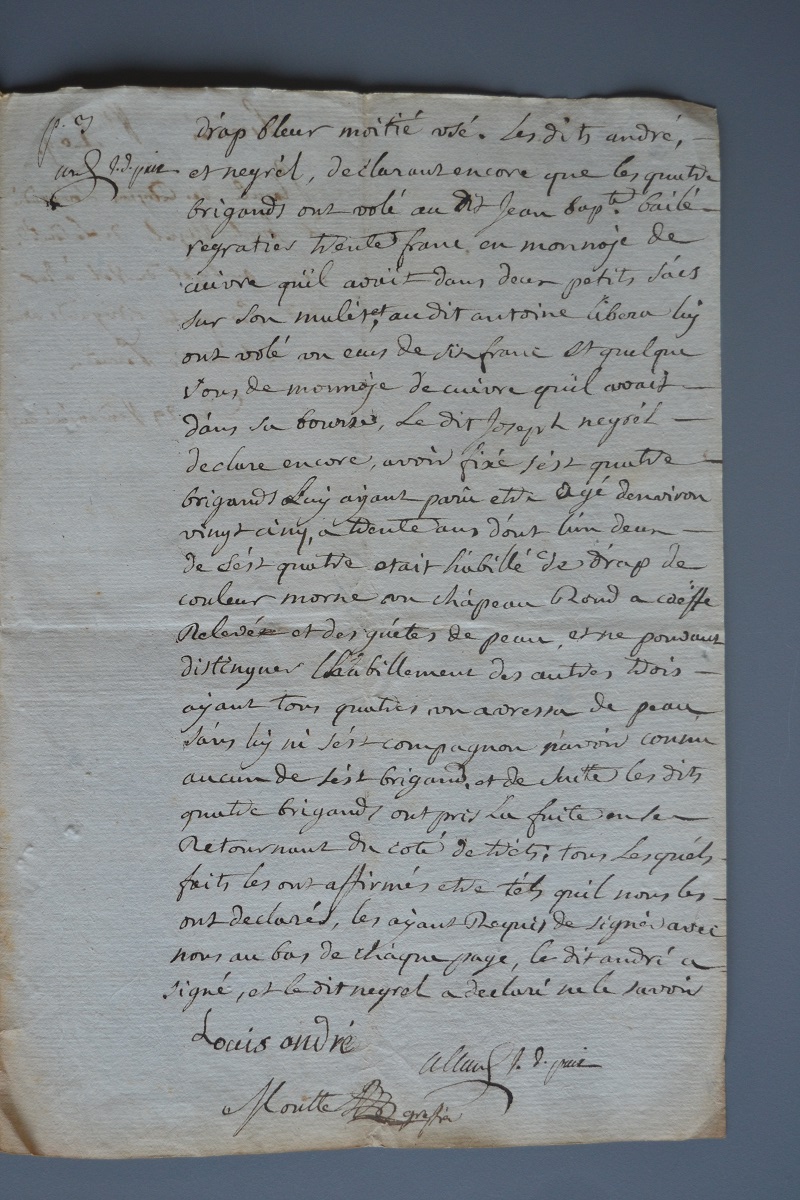 p. 3
J. d. paix
drap bleur moitié usé. Les dits andré,
et neyrél, déclarant encore que les quatre
brigands ont volé au dit Jean bap.te bailé
regraties trente franc en monnoje de
cuivre qu'il avait dans deux petits sács
sur son mulét, et au dit antoine libera luy
ont volé un ecus de six franc et quelque
sous de monnoje de cuivre qu'il avait
dáns sa bourse, Le dit Joseph neyrél
declare encore, avoir fixé sést quatre
brigands Luy ayant parû etre agé denviron
vingt cinq, a trente ans dónt l'un deux
de sést quatre etait hábillé de drap de
couleur morne un chápeau Rond a coëffe
Relevée et des guétes de peau, et ne pouvant
distinguer l'habillement des autres trois
ayant tous quatres un avressa de peau
sáns luy ni sést compagnon n'avoir connu
aucun de sést brigand, et de suitte les dits
quatre brigands ont pris La fuite en se
Retournant du coté de tréts; tous Lesquéls
faits les ont affirmés etre téls quil nous les
ont declarés, les ayant Requis de signé avec
nous au bas de cháque page, le dit andré a
signé, et le dit neyrel a declaré ne le savoir
Louis andré
allard J. d. paix
Moutte greffier